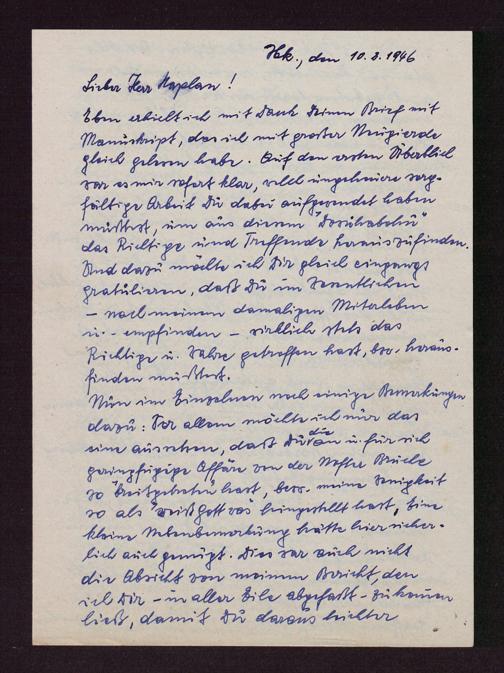 Hek., den 10.3.1946
Lieber Herr Kaplan!
Eben erhielt ich mit Dank Deinen Brief mit
Manuskript, das ich mit grosser Neugierde
gleich gelesen habe. Auf den ersten Überblick
war es mir sofort klar, welch ungeheure sorg-
fältige Arbeit Du dabei aufgewendet haben
müsstest, um aus diesem
das Richtige und Treffende herauszufinden.
Und dazu möchte ich Dir gleich eingangs
gratulieren, dass Du im Wesentlichen
– nach meinem damaligen Miterleben
u. -empfinden – wirklich stets das
Richtige u. Wahre getroffen hast, bzw. heraus-
finden musstest.
Nun im Einzelnen noch einige Bemerkungen
dazu: Vor allem möchte ich nur das
eine aussetzen, dass Du die an u. für sich
geringfügige Affäre von der Brücke
so "breitgetreten" hast, bezw. meine Wenigkeit
so als "weiss Gott was" hingestellt hast. Eine
kleine Nebenbemerkung hätte hier sicher-
lich auch genügt. Dies war auch nicht
die Absicht von meinem Bericht, den
ich Dir – in aller Eile abgefasst – zukommen
liess, damit Du daraus leichter